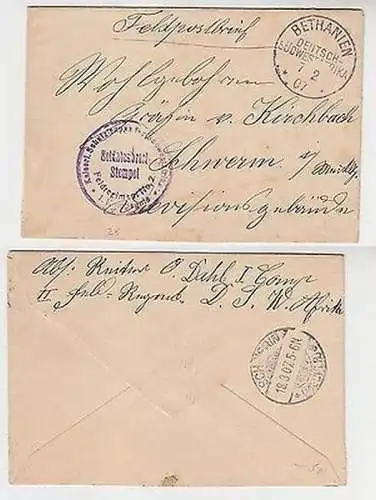 Feldpostbrief
BETHANIEN
DEUTSCH-
SÜDWESTAFRIKA
7 2
07
Wohlgeboren
Gräfin v. Kirchbach
Schwerin i/
Divisionsgebäude
Kaiserl. Schutztruppe
Soldatenbrief
Stempel
Feldregiment No. 2
Abs. Reiter O. Dahl I Comp
II Feld-Regmt. D. S. W. Afrika
SCHWERIN
18.3.07.5-6N.